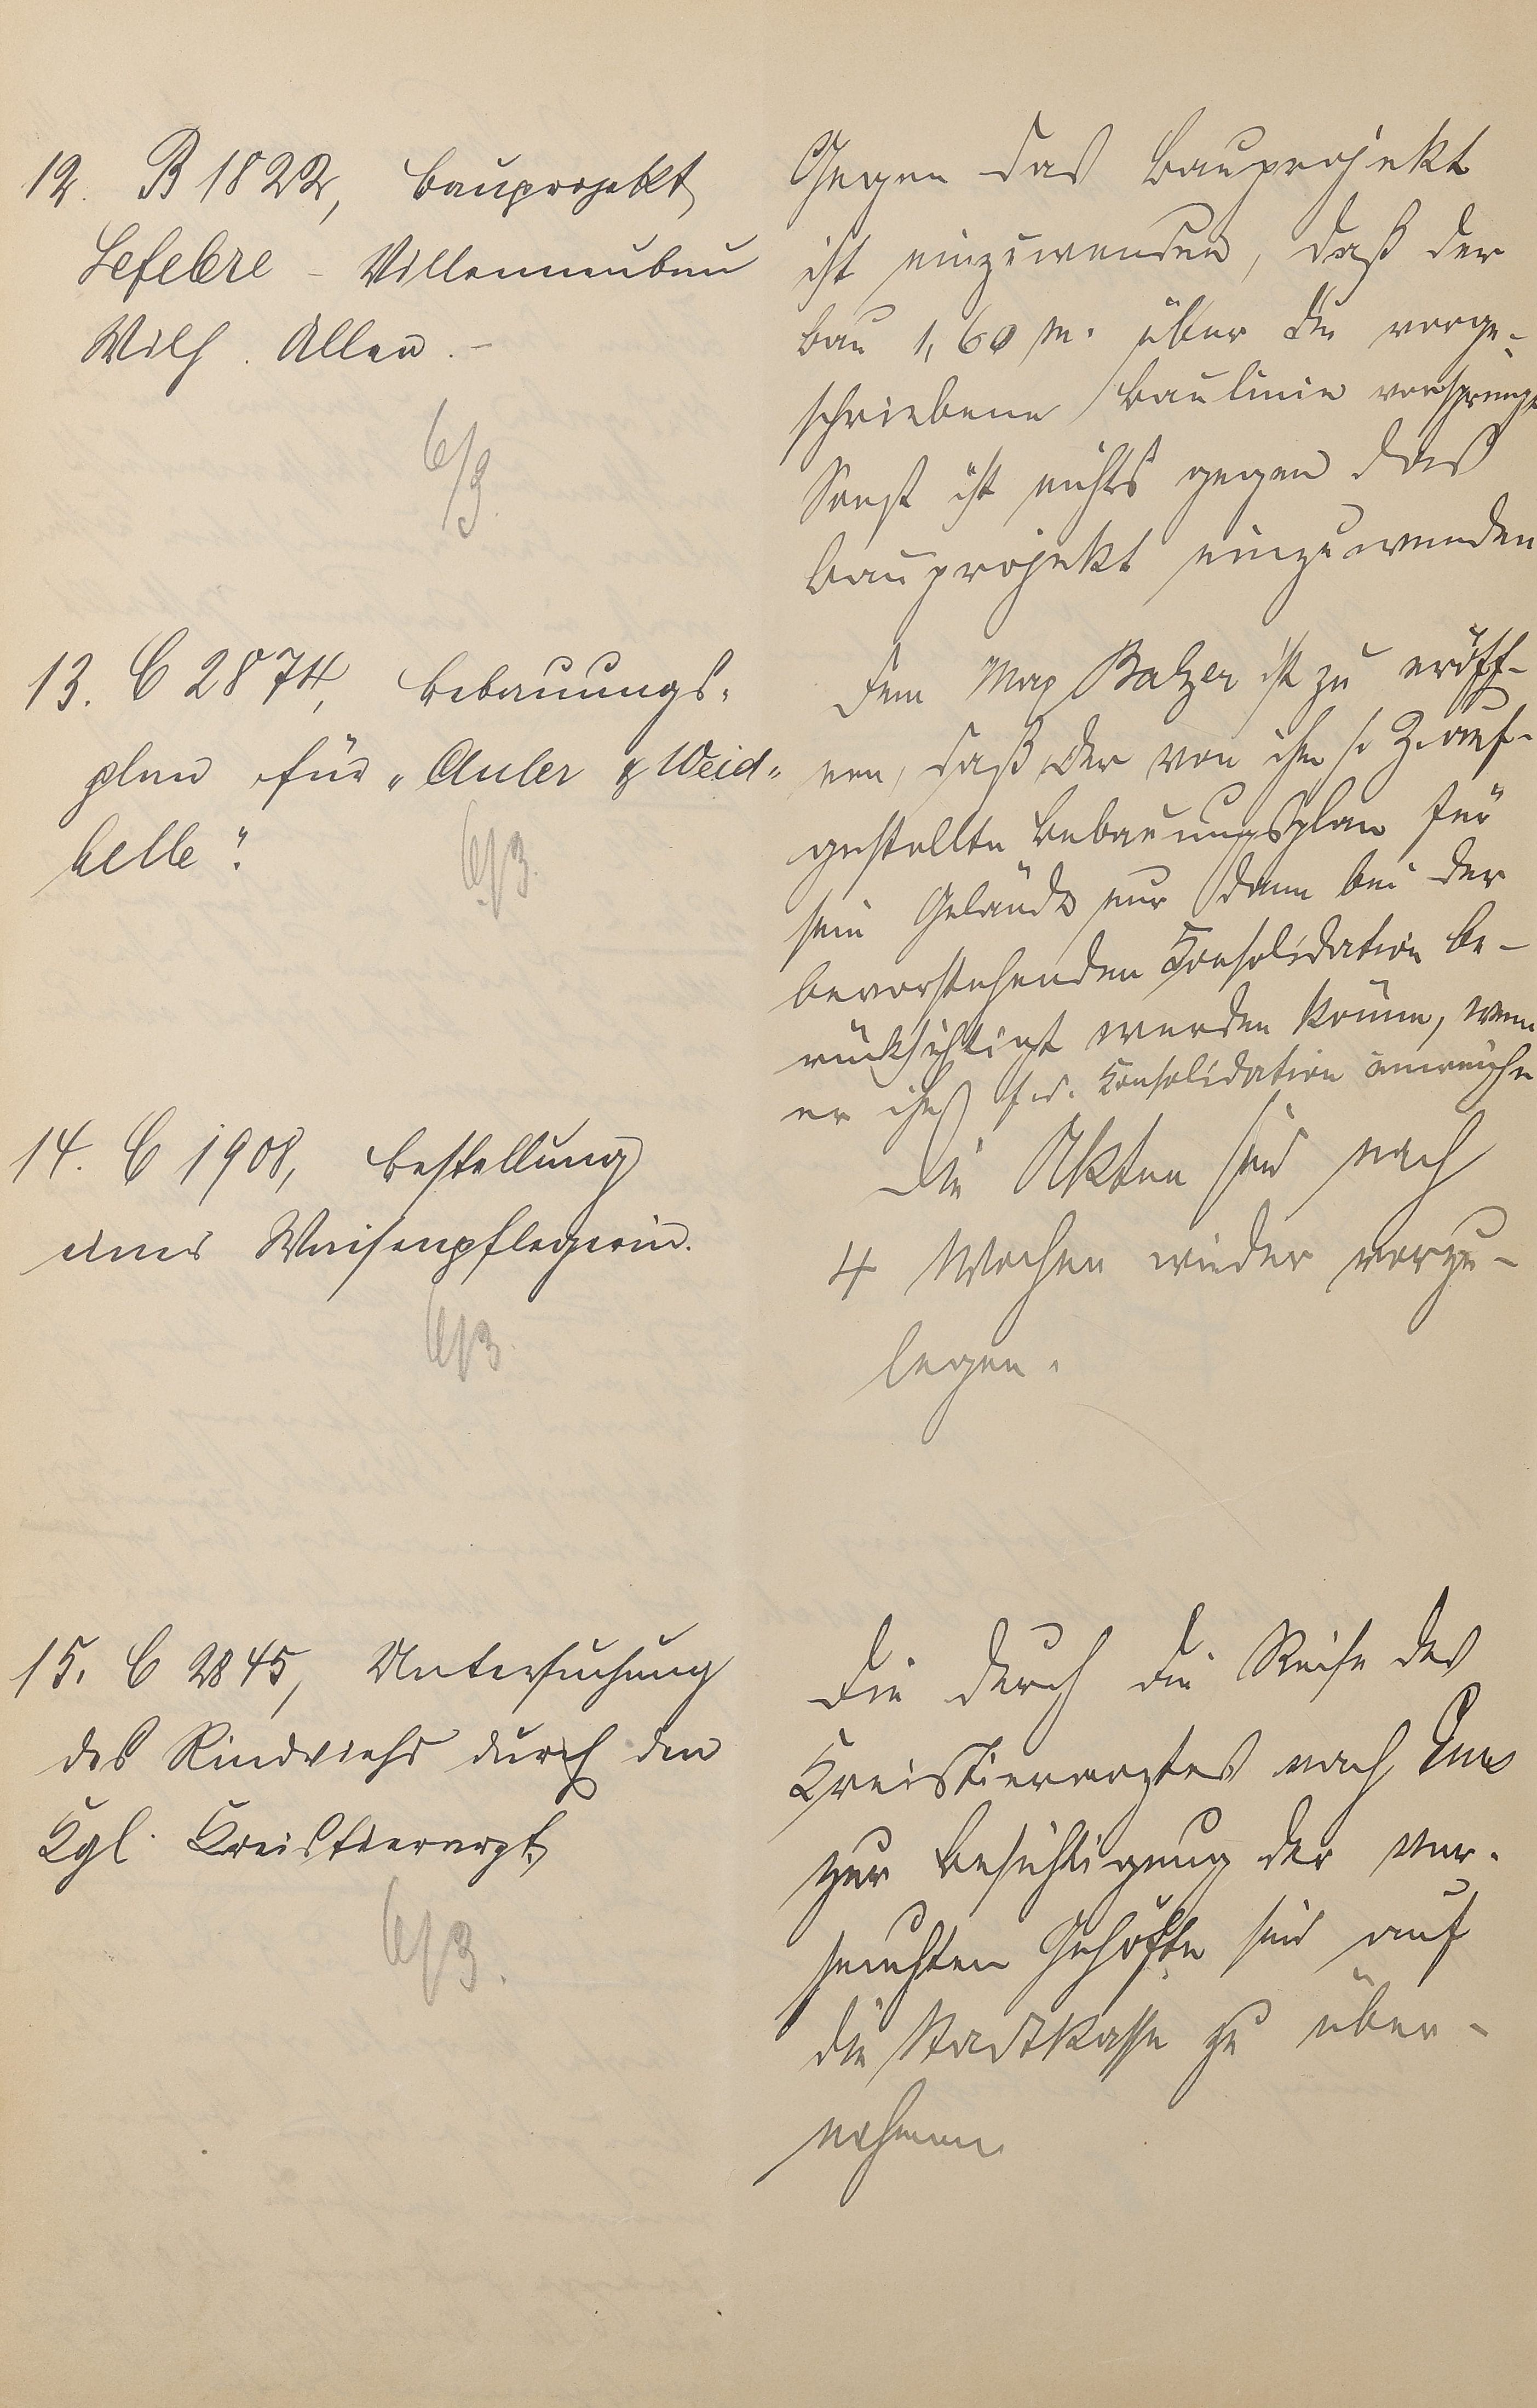 12. B 1822, Bauprojekt
Lefebre - Villenneubau
Wilh. Allee. -
6/3.
Gegen das Bauprojekt
ist einzuwenden, daß der
Bau 1,60 m. über die vorge-
schriebene Baulinie vorspringt
Sonst ist nichts gegen das
Bauprojekt einzuwenden
13. C 2874, Bebauungs-
plan für „Auler & Weid-
helle".
6/3.
Dem Max Balzer ist zu eröff-
nen, daß der von ihm s. Z. auf-
gestellte Bebauungsplan für
sein Gelände nur dann bei der
bevorstehenden Konsolidation be-
rücksichtigt werden könne, wenn
er Konsolidation einreiche
14. C 1908, Bestellung
einer Waisenpflegerin.
6/3.
Die Akten sind nach
4 Wochen wieder vorzu-
legen.
15. C 2845, Untersuchung
des Rindviehs durch den
Kgl. Kreistierarzt.
6/3.
Die durch die Reise des
Kreistierarztes nach Ems
zur Besichtigung der ver-
seuchten Gehöfte sind auf
die Stadtkasse zu über-
nehmen